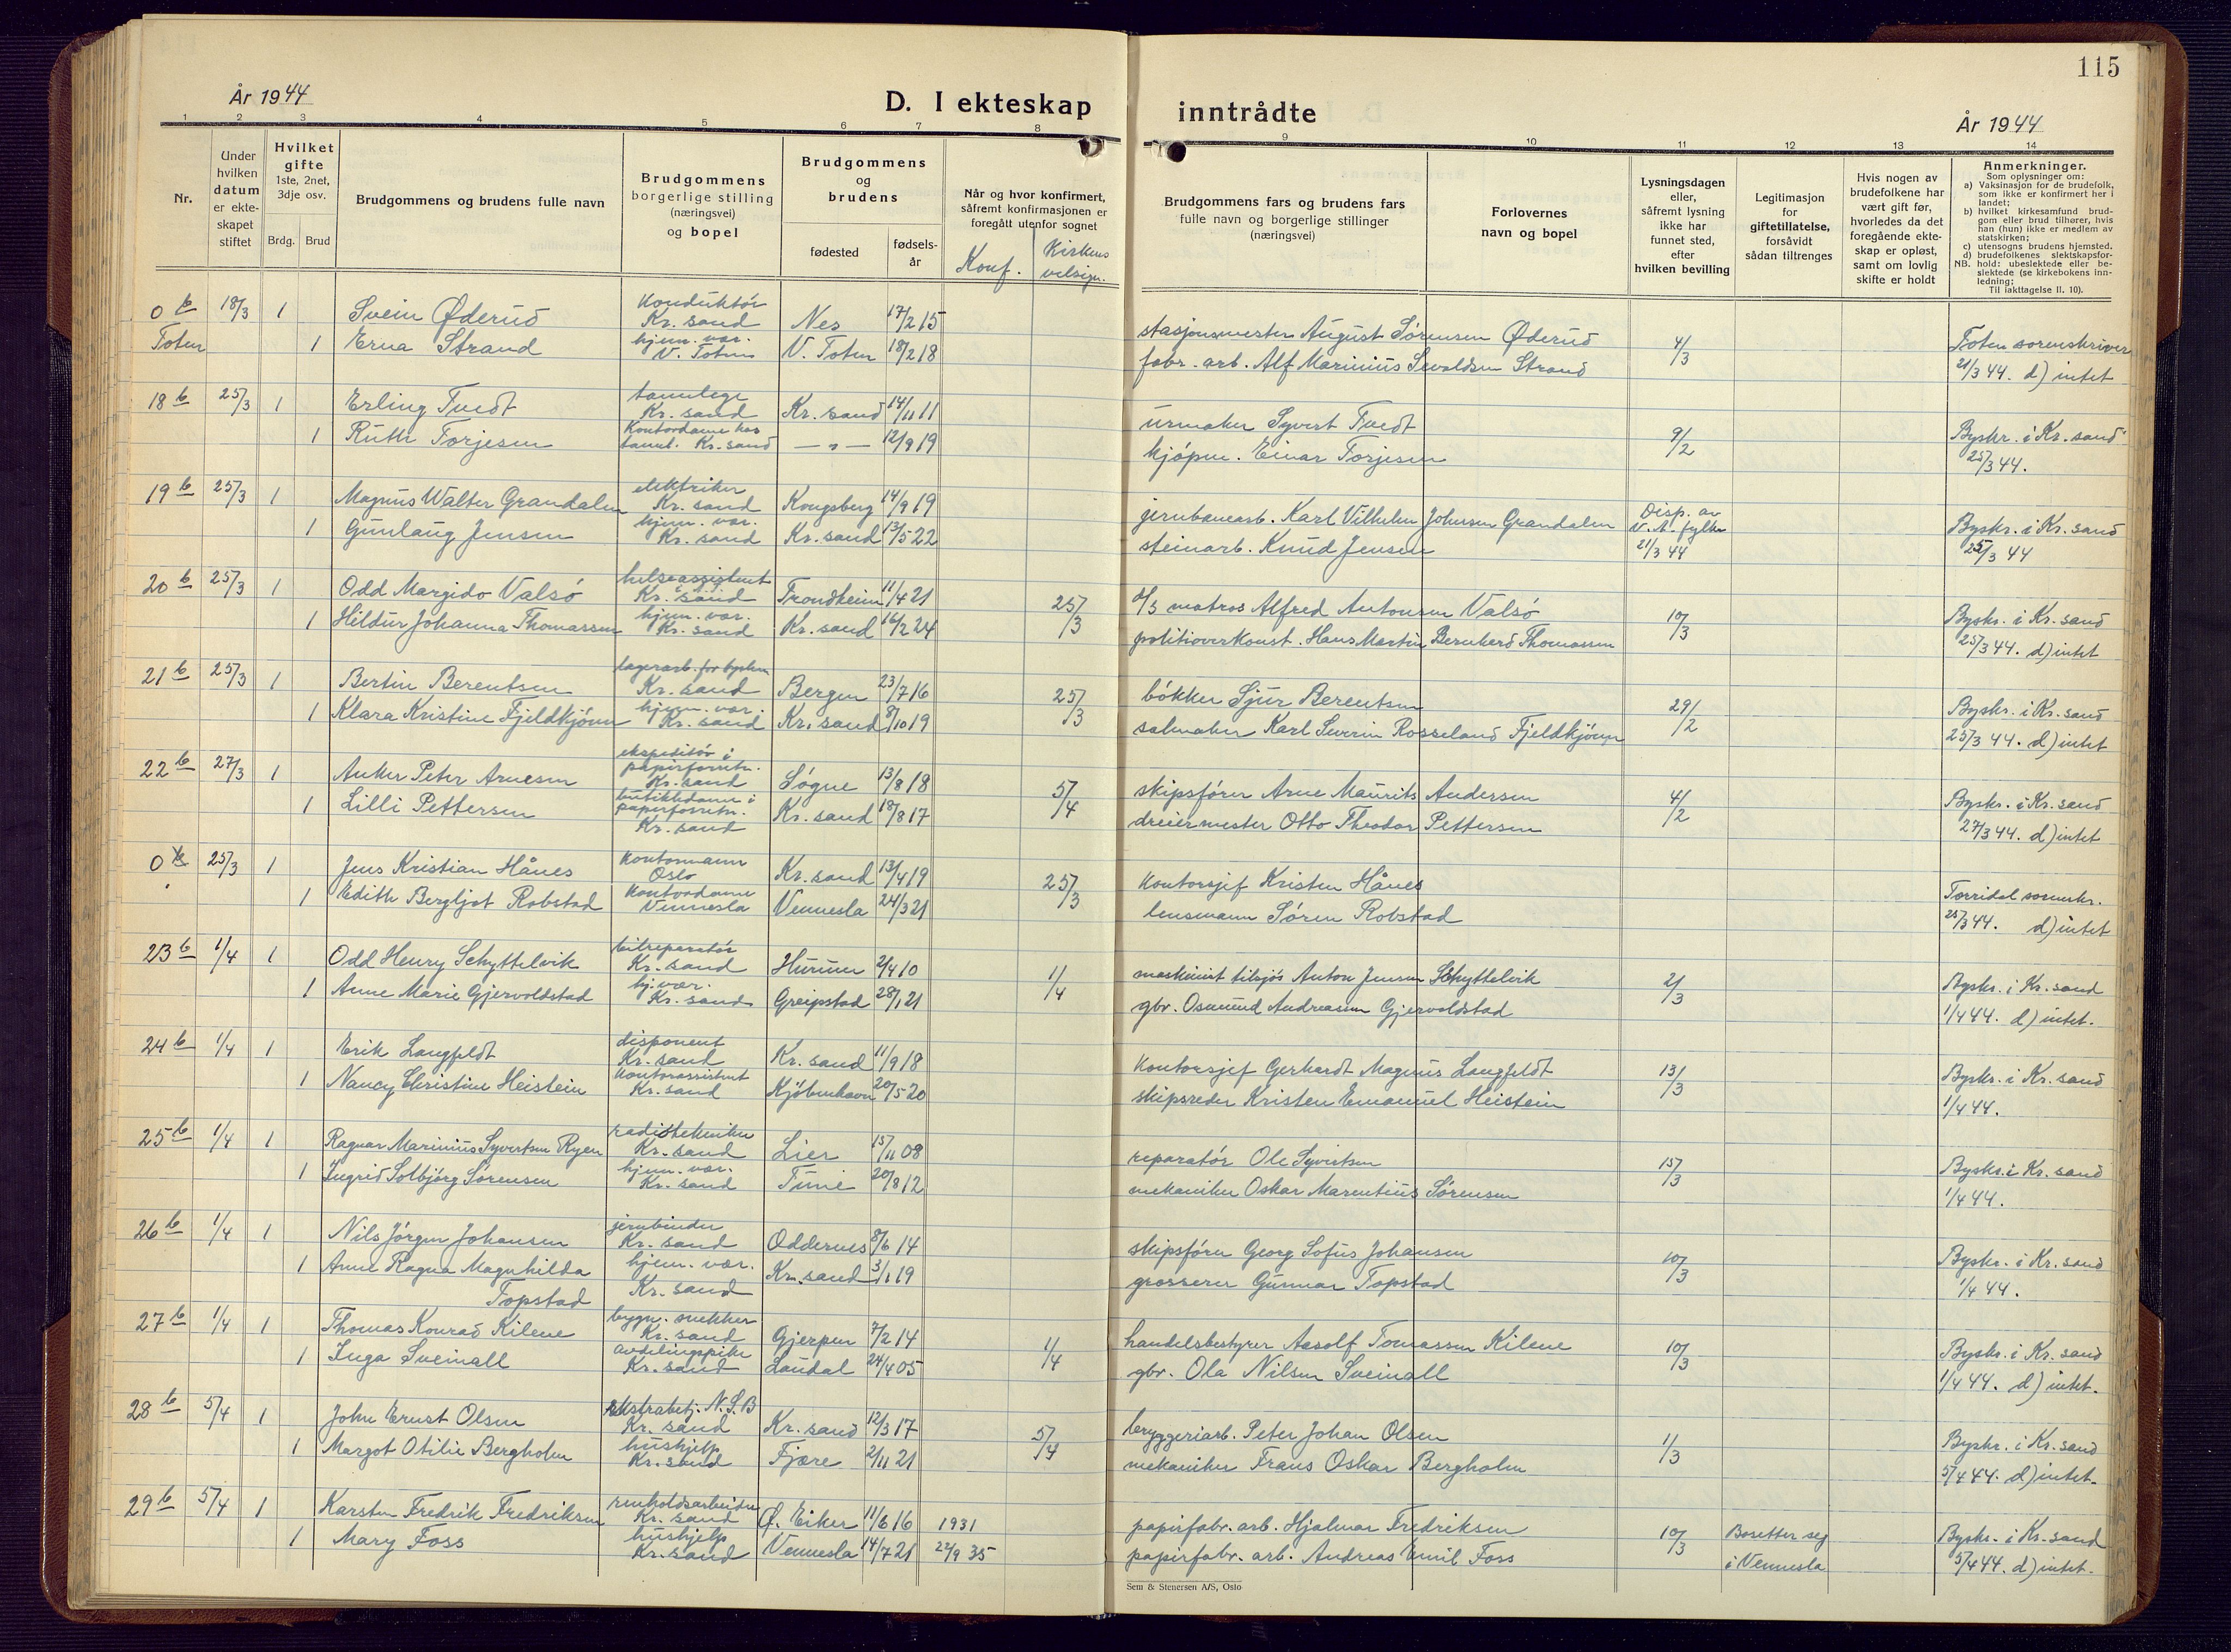 115
År 1944
D. I ekteskap inntrådte
År 1944
1 2 3 4 5 6 7 8 9 10 11 12 13 14
Nr.
Under hvilken datum er ekteskapet stiftet
Hvilket gifte 1ste, 2net, 3dje osv.
Brdg. Brud
Brudgommens og brudens fulle navn
Brudgommens borgerlige stilling (næringsvei) og bopel
Brudgommens og brudens
fødested
fødselsår
Når og hvor konfirmert, såfremt konfirmasjonen er foregått utenfor sognet
Konf. Kirkens velsign.
Brudgommens fars og brudens fars fulle navn og borgerlige stillinger (næringsvei)
Forlovernes navn og bopel
Lysningsdagen eller, såfremt lysning ikke har funnet sted, efter hvilken bevilling
Legitimasjon for giftetillatelse, forsåvidt sådan tiltrenges
Hvis nogen av brudefolkene har vært gift før, hvorledes da det foregående ekteskap er opløst, samt om lovlig skifte er holdt
Anmerkninger.
Som oplysninger om:
a) Vaksinasjon for de brudefolk, som ikke er konfirmert her i landet;
b) hvilket kirkesamfund brudgom eller brud tilhører, hvis han (hun) ikke er medlem av statskirken;
c) utensogns brudens hjemsted.
d) brudefolkenes slektskapsforhold: ubeslektede eller beslektede (se kirkebokens innledning;
NB. Til iakttagelse II, 10).
0 b 18/3 1 Svein Øderud konduktør Kr. sand Nes 17/2 15 stasjonsmester August Sørensen Øderud 4/3 Toten sorenskriver
Toten 1 Erna Strand hjem. vær. V. Toten V. Toten 18/2 18 fabr. arb. Alf Marinius Sevaldsen Strand 21/3 44. d) intet
18 b 25/3 1 Erling Tvedt tannlege Kr. sand Kr. sand 14/11 11 urmaker Syvert Tvedt 9/2 Byskr. i Kr. sand
1 Ruth Torjesen Kontordame hos tannl. Kr. sand — " — 12/9 19 kjøpm. Einar Torjesen 25/3 44.
19 b 25/3 1 Magnus Walter Grandalen elektriker Kr. sand Kongsberg 14/9 19 jernbanearb. Karl Vilhelm Johnsen Grandalen Disp. av V. A. fylke 21/3 44 Byskr. i Kr. sand
1 Gunlaug Jensen hjem. vær. Kr. sand Kr. sand 13/5 22 steinarb. Knud Jensen 25/3 44
20 b 25/3 1 Odd Margido Valsø helseassistent Kr. sand Trondheim 11/4 21 25/3 matros Alfred Antonsen Valsø 10/3 Byskr. i Kr. sand
1 Hildur Johanna Thomassen hjem. vær. Kr. sand Kr. sand 16/2 24 politioverkonst. Hans Martin Bernhard Thomassen 25/3 44. d) intet
21 b 25/3 1 Bertin Berentsen lagerarb. for byskem Kr. sand Bergen 23/7 16 25/3 bøkker Sjur Berentsen 29/2 Byskr. i Kr. sand
1 Klara Kristine Fjeldkjønn hjem. vær. Kr. sand Kr. sand 8/10 19 salmaker Karl Severin Rosseland Fjeldkjønn 25/3 44. d) intet
22 b 27/3 1 Anker Peter Arnesen ekspeditør i papirforretn. Kr. sand Søgne 13/8 18 5/4 skipsfører Arne Maurits Andersen 4/2 Byskr. i Kr. sand
1 Lilli Pettersen butikkdame i papirforretn. Kr. sand Kr. sand 18/8 17 dreiermester Otto Theodor Pettersen 27/3 44. d) intet
0 b 25/3 1 Jens Kristian Hånes kontormann Oslo Kr. sand 13/4 19 25/3 kontorsjef Kristen Hånes Torridal sorenskr.
1 Edith Bergljot Robstad kontordame Vennesla Vennesla 24/3 21 lensmann Søren Robstad 25/3 44. d) intet
23 b 1/4 1 Odd Henry Schyttelvik bilreparatør Kr. sand Hurum 2/4 10 1/4 maskinist tilsjøs Anton Jensen Schyttelvik 2/3 Byskr. i Kr. sand
1 Anne Marie Gjervoldstad hj. vær. Kr. sand Greipstad 28/1 21 gbr. Osmund Andreassen Gjervoldstad 1/4 44. d) intet.
24 b 1/4 1 Erik Langfeldt disponent Kr. sand Kr. sand 11/9 18 kontorsjef Gerhardt Magnus Langfeldt 13/3 Byskr. i Kr. sand
1 Nancy Christine Heistein kontorassistent Kr. sand Kjøbenhavn 20/5 20 skipsreder Kristen Emanuel Heistein 1/4 44.
25 b 1/4 1 Ragnar Marinius Syvertsen Ryen radiotekniker Kr. sand Lier 15/11 08 reparatør Ole Syvertsen 15/3 Byskr. i Kr. sand
1 Ingrid Solbjørg Sørensen hjem. vær. Kr. sand Tune 20/8 12 mekaniker Oskar Marentius Sørensen 1/4 44.
26 b 1/4 1 Nils Jørgen Johansen jernbinder Kr. sand Oddernes 8/6 14 skipsfører Georg Sofus Johansen 10/3 Byskr. i Kr. sand
1 Anne Ragna Magnhilda Topstad hjem. vær. Kr. sand Kr. sand 3/1 19 grosserer Gunnar Topstad 1/4 44.
27 b 1/4 1 Thomas Konrad Kilene bygn. snekker Kr. sand Gjerpen 7/2 14 1/4 handelsbestyrer Aasolf Tomassen Kilene 10/3 Byskr. i Kr. sand
1 Inga Sveinall avdelingspike Kr. sand Laudal 24/4 05 gbr. Ola Nilsen Sveinall 1/4 44. d) intet.
28 b 5/4 1 John Ernst Olsen ekstrabetj. N.S.B Kr. sand Kr. sand 12/3 17 5/4 bryggeriarb. Peter Johan Olsen 1/3 Byskr. i Kr. sand
1 Margot Otilie Bergholm hushjelp Kr. sand Fjære 2/11 21 mekaniker Frans Oskar Bergholm 5/4 44. d) intet.
29 b 5/4 1 Karsten Fredrik Fredriksen renholdsarbeider Kr. sand Ø. Eiker 11/6 16 1931 papirfabr. arb. Hjalmar Fredriksen 10/3 Bosetter seg i Vennesla Byskr. i Kr. sand
1 Mary Foss hushjelp Kr. sand Vennesla 14/7 21 22/9 35 papirfabr. arb. Andreas Emil Foss 5/4 44. d) intet.
Sem & Stenersen A/S, Oslo